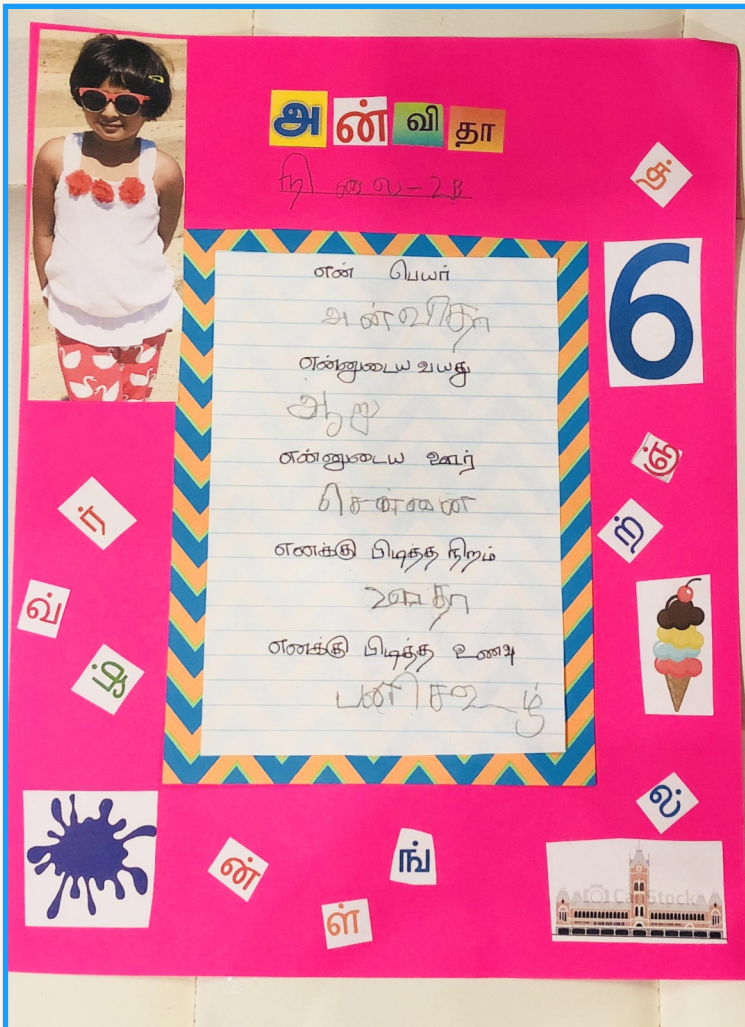 அன்விதா
நிலை-2B
த்
6
என் பெயர்
அன்விதா
என்னுடைய வயது
ஆறு
என்னுடைய ஊர்
சென்னை
எனக்கு பிடித்த நிறம்
ஊதா
எனக்கு பிடித்த உணவு
ஞ்
ர்
ற்
வ்
ழ்
ல்
ன்
ங்
ள்